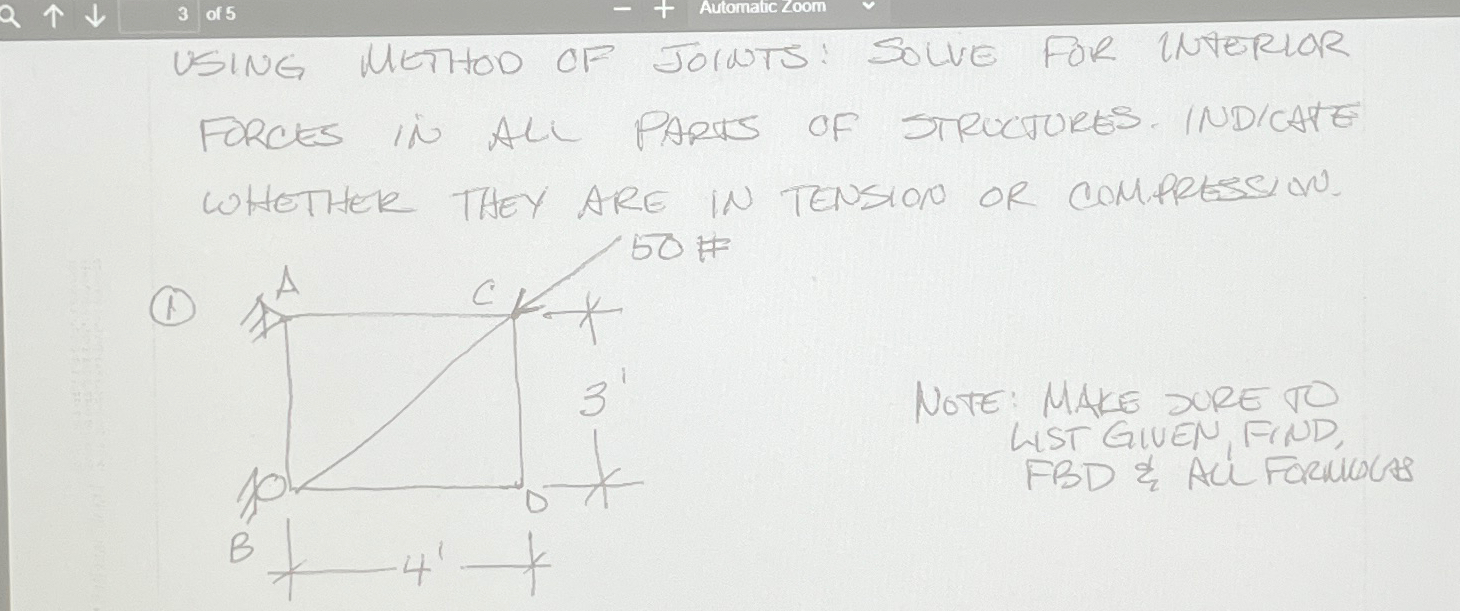 3 of 5
− + Automatic Zoom
USING METHOD OF JOINTS: SOLVE FOR INTERIOR
FORCES IN ALL PARTS OF STRUCTURES. INDICATE
WHETHER THEY ARE IN TENSION OR COMPRESSION.
50 #
1 A C
3'
NOTE: MAKE SURE TO
LIST GIVEN, FIND,
FBD & ALL FORMULAS
D
B
4'